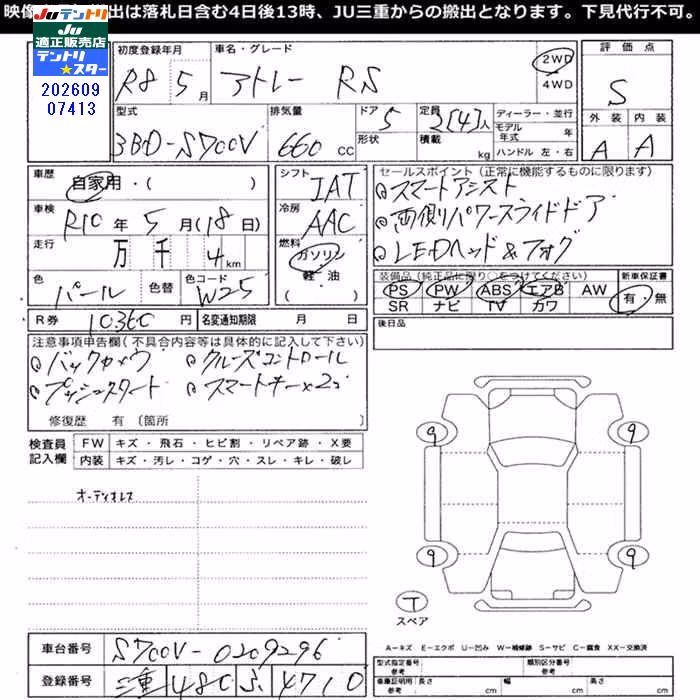 映像 出は落札日含む4日後13時、JU三重からの搬出となります。下見代行不可。
JU JUテントリ
適正販売店 テントリ★スター
202609
07413
初度登録年月 車名・グレード 評価点
R8 5月 アトレー RS 2WD 4WD S
型式 排気量 ドア 形状 定員 積載 ディーラー・並行 外装 内装
3BD-S700V 660cc 5 2[4]人 kg モデル年式 年 ハンドル 左・右 A A
車歴 シフト セールスポイント(正常に機能するものに限ります)
自家用・( ) IAT スマートアシスト
車検 R10年5月(18日) 冷房 AAC 両側パワースライドドア
走行 万 千 4km 燃料 ガソリン 軽・油 ( ) LEDヘッド&フォグ
色 パール 色替 色コード W25 装備品(純正品に限り○をつけてください) 新車保証書
PS PW ABS エアB AW 有・無
SR ナビ TV カワ
R券 10360円 名変通知期限 月 日 後日品
注意事項申告欄(不具合内容等は具体的に記入して下さい)
バックカメラ クルーズコントロール
プッシュスタート スマートキー×2コ
修復歴 有〔箇所
検査員記入欄 FW キズ・飛石・ヒビ割・リペア跡・X要
内装 キズ・汚レ・コゲ・穴・スレ・キレ・破レ
オーディオレス
9 9
9 9
T
スペア
A=キズ E=エクボ U=凹み W=補修跡 S=サビ C=腐食 XX=交換済
車台番号 S700V-0209296
登録番号 三重 480 る 4710
型式指定番号 参考 類別区分番号 参考
車庫証明用 参考 長さ cm 幅 cm 高さ cm